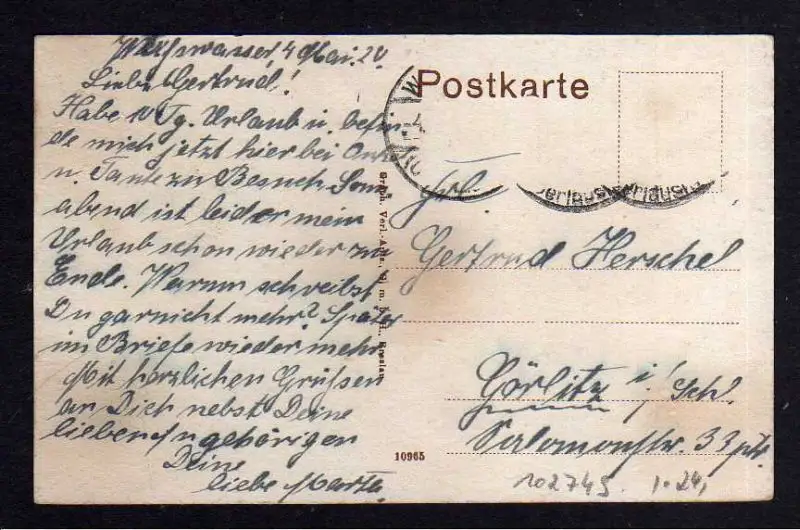 Weißwasser, 4 Mai. 20
Liebe Gertrud!
Habe 10 Tg. Urlaub u. befin-
de mich jetzt hier bei
u. Tante zu Besuch. Sonn
abend ist leider mein
Urlaub schon wieder zu
Ende. Warum schreibst
Du garnicht mehr? Später
im Briefe wieder mehr
Mit herzlichen Grüßen
an Dich nebst Deine
lieben Angehörigen
Deine
liebe Marta
Postkarte
Frl.
Gertrud Herschel
Görlitz i/ Schl
Salomonstr. 33 ptr.
10965
102745. 1.24,